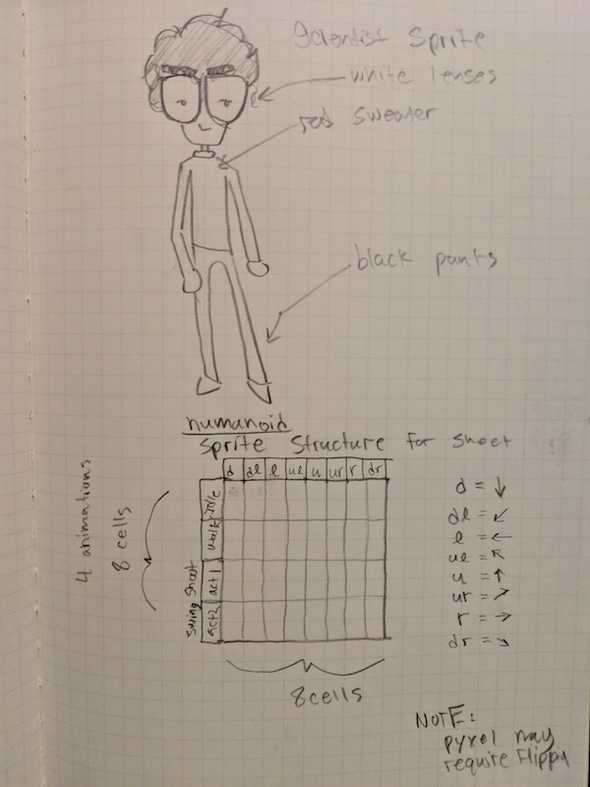 Scientist Sprite
white lenses
red sweater
black pants
humanoid
Sprite Structure for Sheet
d dl l ul u ur r dr
idle
walk
act1
act2
Shoot
Swing
4 animations
8 cells
8 cells
d = ↓
dl = ↙
l = ←
ul = ↖
u = ↑
ur = ↗
r = →
dr = ↘
NOTE:
pyxel may
require Flippy